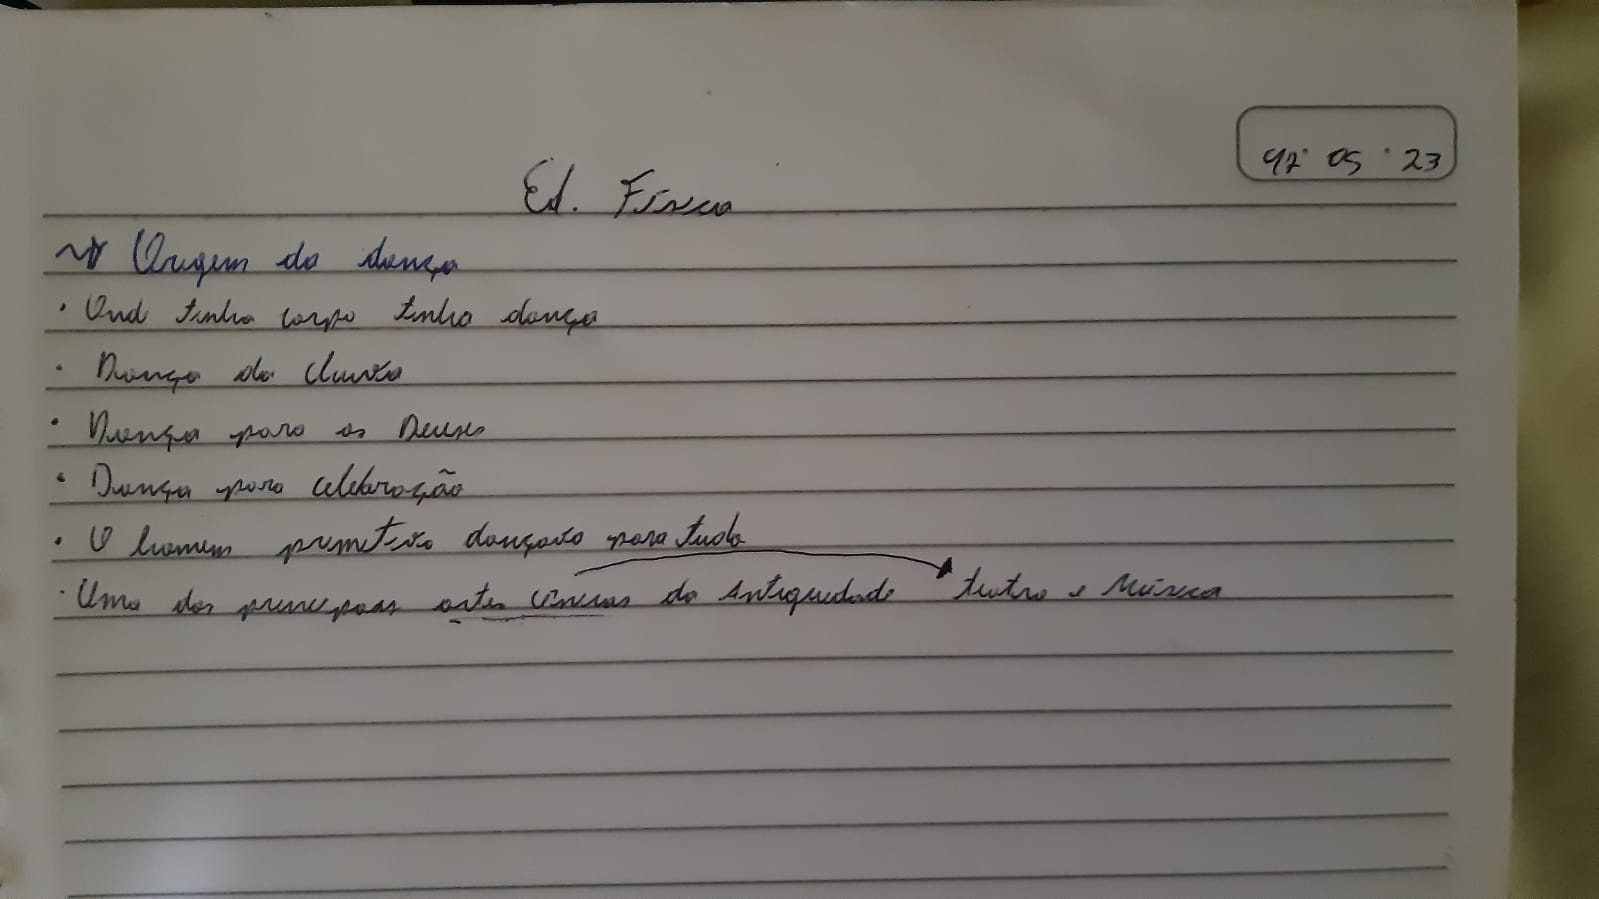 12 05 23
Ed. Física
Origem da dança
· Ond tinha corpo tinha dança
· Dança da chuva
· Dança para os Deuses
· Dança para celebração
· O homem primitivo dançava para tudo
· Uma das principais artes cênicas da Antiguidade → teatro e Música